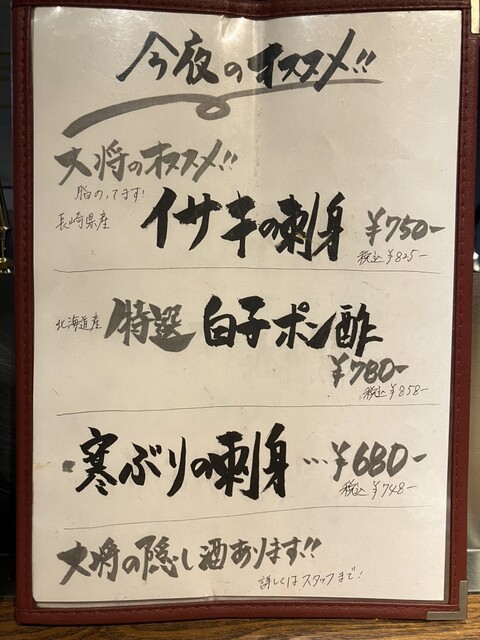 今夜のオススメ!!
大将のオススメ!!
脂のってます!
長崎県産 イサキの刺身 ¥750-
税込¥825-
北海道産 特選 白子ポン酢
¥780-
税込¥858-
寒ぶりの刺身 …¥680-
税込¥748-
大将の隠し酒あります!!
詳しくはスタッフまで!